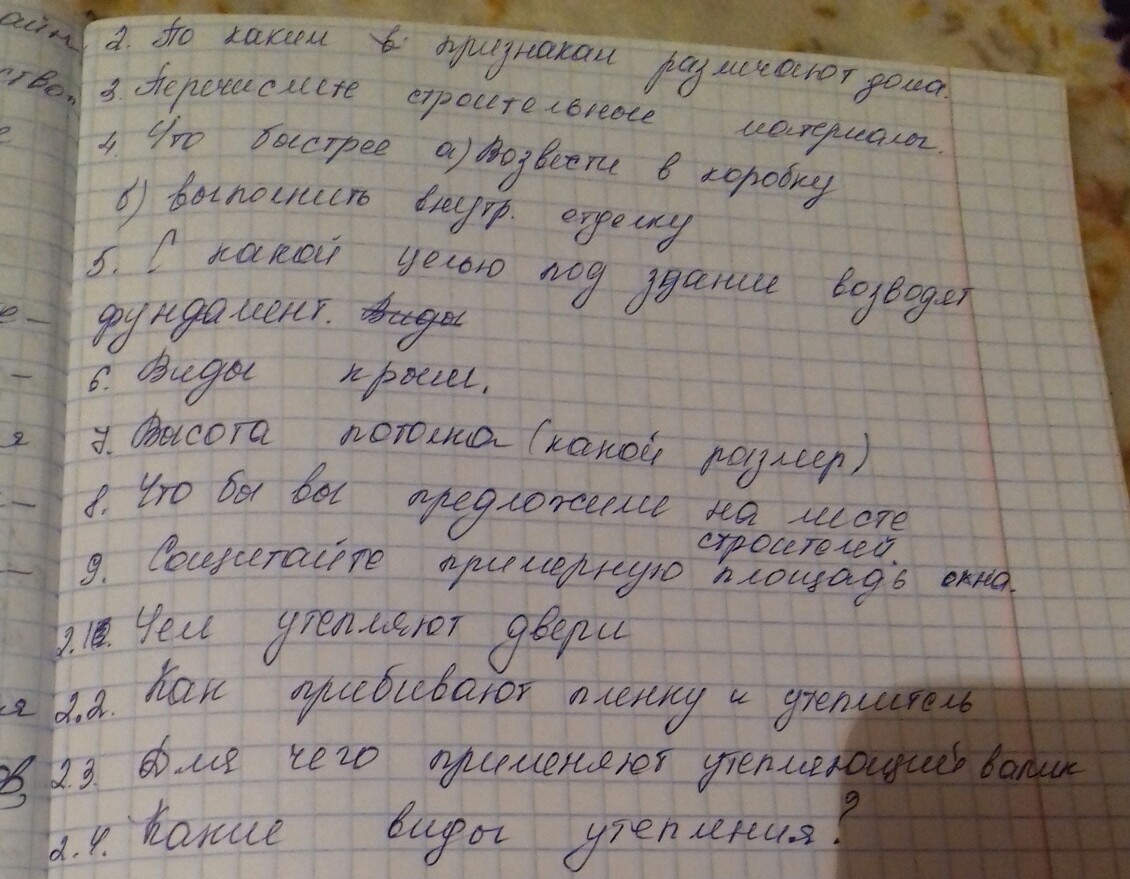 2. По каким в признакам различают дома.
3. Перечислите строительные материалы.
4. Что быстрее а) Возвести в коробку
б) выполнить внутр. отделку
5. С какой целью под здание возводят
фундамент. Виды
6. Виды крыш.
7. Высота потолка (какой размер)
8. Что бы вы предложили на месте
строителей
9. Сощитайте примерную площадь окна.
2.1. Чем утепляют двери
2.2. Как прибивают пленку и утеплитель
2.3. Для чего применяют утепляющий валик
2.4. Какие виды утепления?